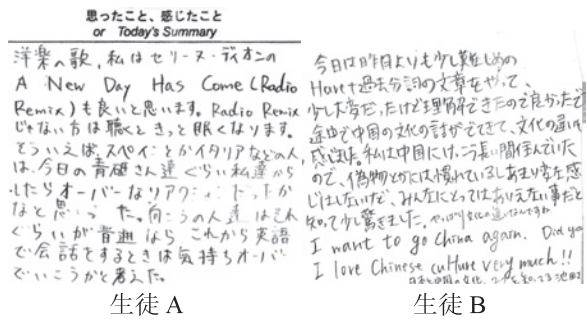 思ったこと、感じたこと
or Today's Summary
洋楽の歌、私はセリーヌ・ディオンの
A New Day Has Come (Radio
Remix)も良いと思います。Radio Remix
じゃない方は聴くときっと眠くなります。
そういえば、スペインとかイタリアなどの人
は、今日の青磁さん達ぐらい私達から
したらオーバーなリアクションだったか
なと思った。向こうの人達はそれ
ぐらいが普通なら、これから英語
で会話をするときは気持ちオーバー
でいこうかと考えた。
生徒A
今日は昨日よりも少し難しめの
Have+過去分詞の文章をやって、
少し大変だったけど理解できたので良かったです
途中で中国の文化の話ができてて、文化の違いを
感じました。私は中国にけっこう長い間住んでいた
ので、偽物とかには慣れているしあまり変な感
じはしないけど、みんなにとってはありえない事だと
知って少し驚きました。やっぱり文化の違いなんですね
I want to go China again. Did you
I love Chinese culture very much!!
生徒B